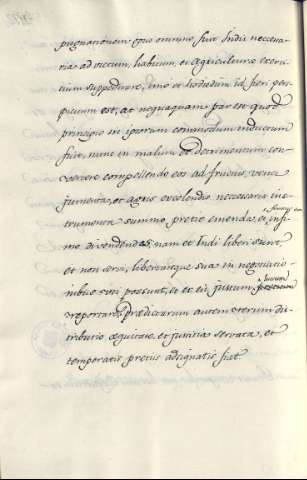 pugnationem opus omnino fuit Indis necessa-
ria ad victum, habitum, et agriculturæ exerci-
tium suppeditare, imo et hodiedum id fieri per-
spicuum est, at nequaquam par est quod
principio in ipsorum commodum inductum
fuit, nunc in malum et detrimentum con-
vertere compellendo eos ad frivola, vina
jumenta, et agris excolendis necessaria ins-
trumenta summo pretio emenda, et infi-
mo divendenda, nam et Indi liberi sunt,
et non servi, libertateque sua in negotiatio-
nibus uti possunt, et ex eis justum
reportare. Prædictarum autem rerum dis-
tributio æquitate, et justitia servata, et
temperatis pretiis adsignatis fiat.